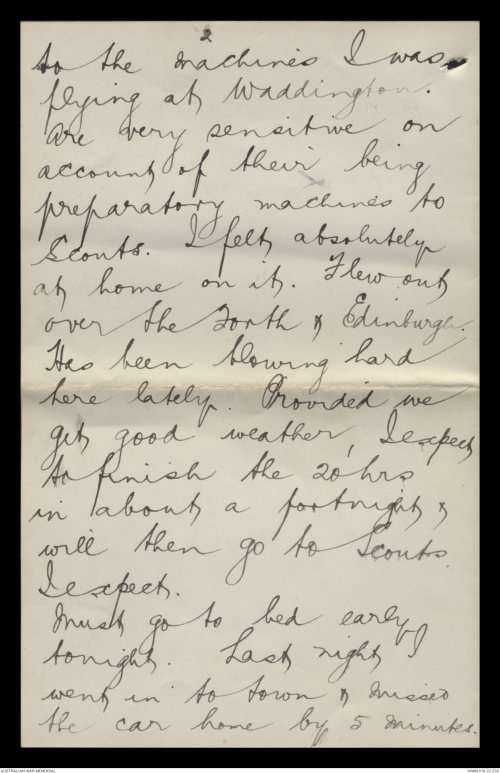 2
to the machines I was
flying at Waddington.
Are very sensitive on
account of their being
preparatory machines to
Scouts. I felt absolutely
at home on it. Flew out
over the Forth & Edinburgh.
Has been blowing hard
here lately. Provided we
get good weather, I expect
to finish the 20 hrs
in about a fortnight &
will then go to Scouts
I expect.
Must go to bed early
tonight. Last night I
went in to town & missed
the car home by 5 minutes.
AUSTRALIAN WAR MEMORIAL